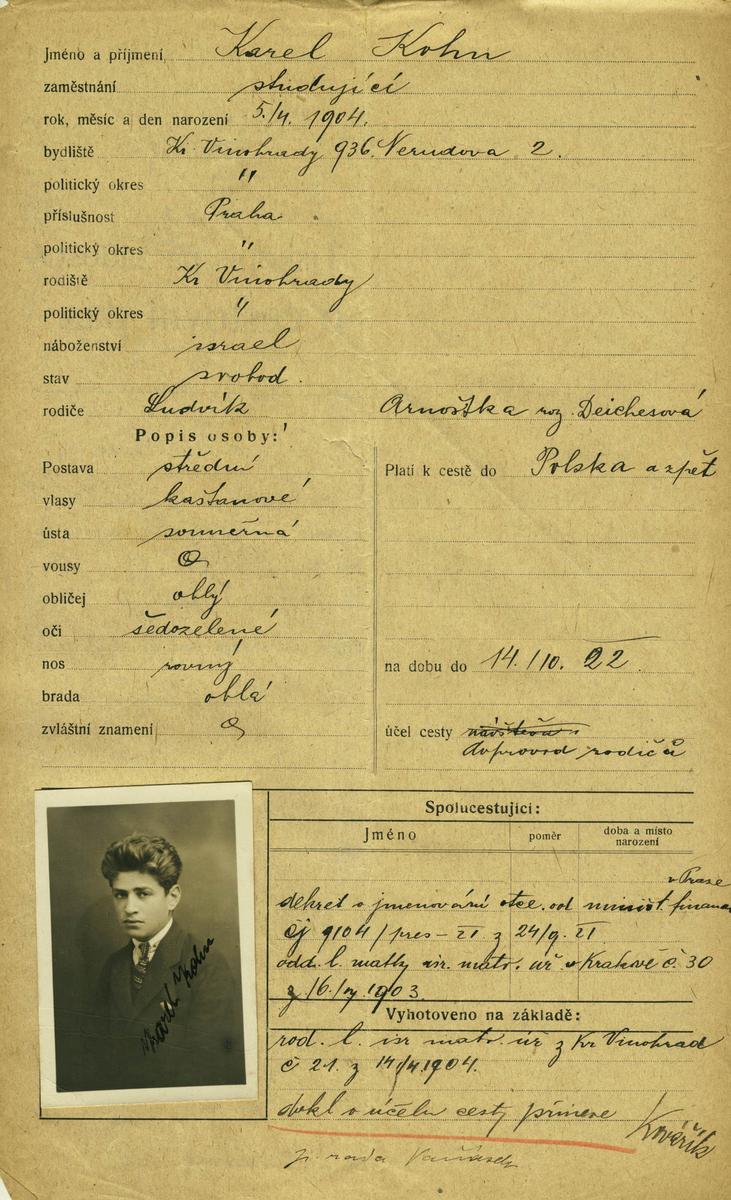 Jméno a příjmení Karel Kohn
zaměstnání studující
rok, měsíc a den narození 5./4. 1904.
bydliště Kr. Vinohrady 936. Nerudova 2.
politický okres "
příslušnost Praha
politický okres "
rodiště Kr Vinohrady
politický okres "
náboženství israel
stav svobod.
rodiče Ludvík Arnoštka roz. Deichesová
Popis osoby:
Postava střední
vlasy kaštanové
ústa souměrná
vousy O
obličej oblý
oči šedozelené
nos rovný
brada oblá
zvláštní znamení O
Platí k cestě do Polska a zpět
na dobu do 14./10. 22
účel cesty návštěva
doprovod rodičů
Spolucestující:
Jméno poměr doba a místo narození
v Praze
dekret o jmenování otce od minist. financí
čj 9104/pres-21 z 24/9. 21
odd. l. matky isr. matr. úř. v Krakově č. 30
z 16. 1903.
Vyhotoveno na základě:
rod. l. isr matr úř z Kr Vinohrad
č 21. z 14/4.1904.
dokl o účelu cesty přinese
Kovářík
rada
Karel Kohn